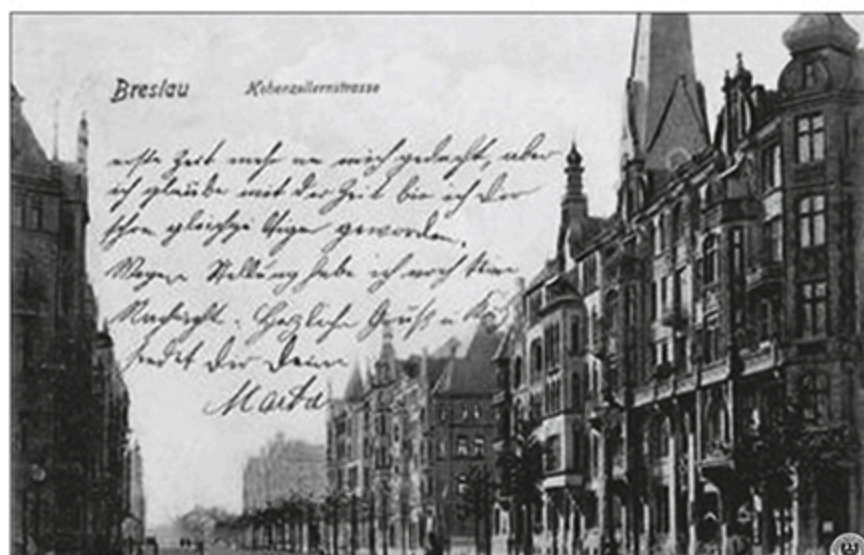 Breslau Hohenzollernstrasse
erste Zeit mehr an mich gedacht, aber
ich glaube mit der Zeit bin ich Dir
schon gleichgültiger geworden.
Wegen Stellung habe ich noch keine
Nachricht. Herzliche Grüße u. Kuß
sendet Dir Deine
Marta